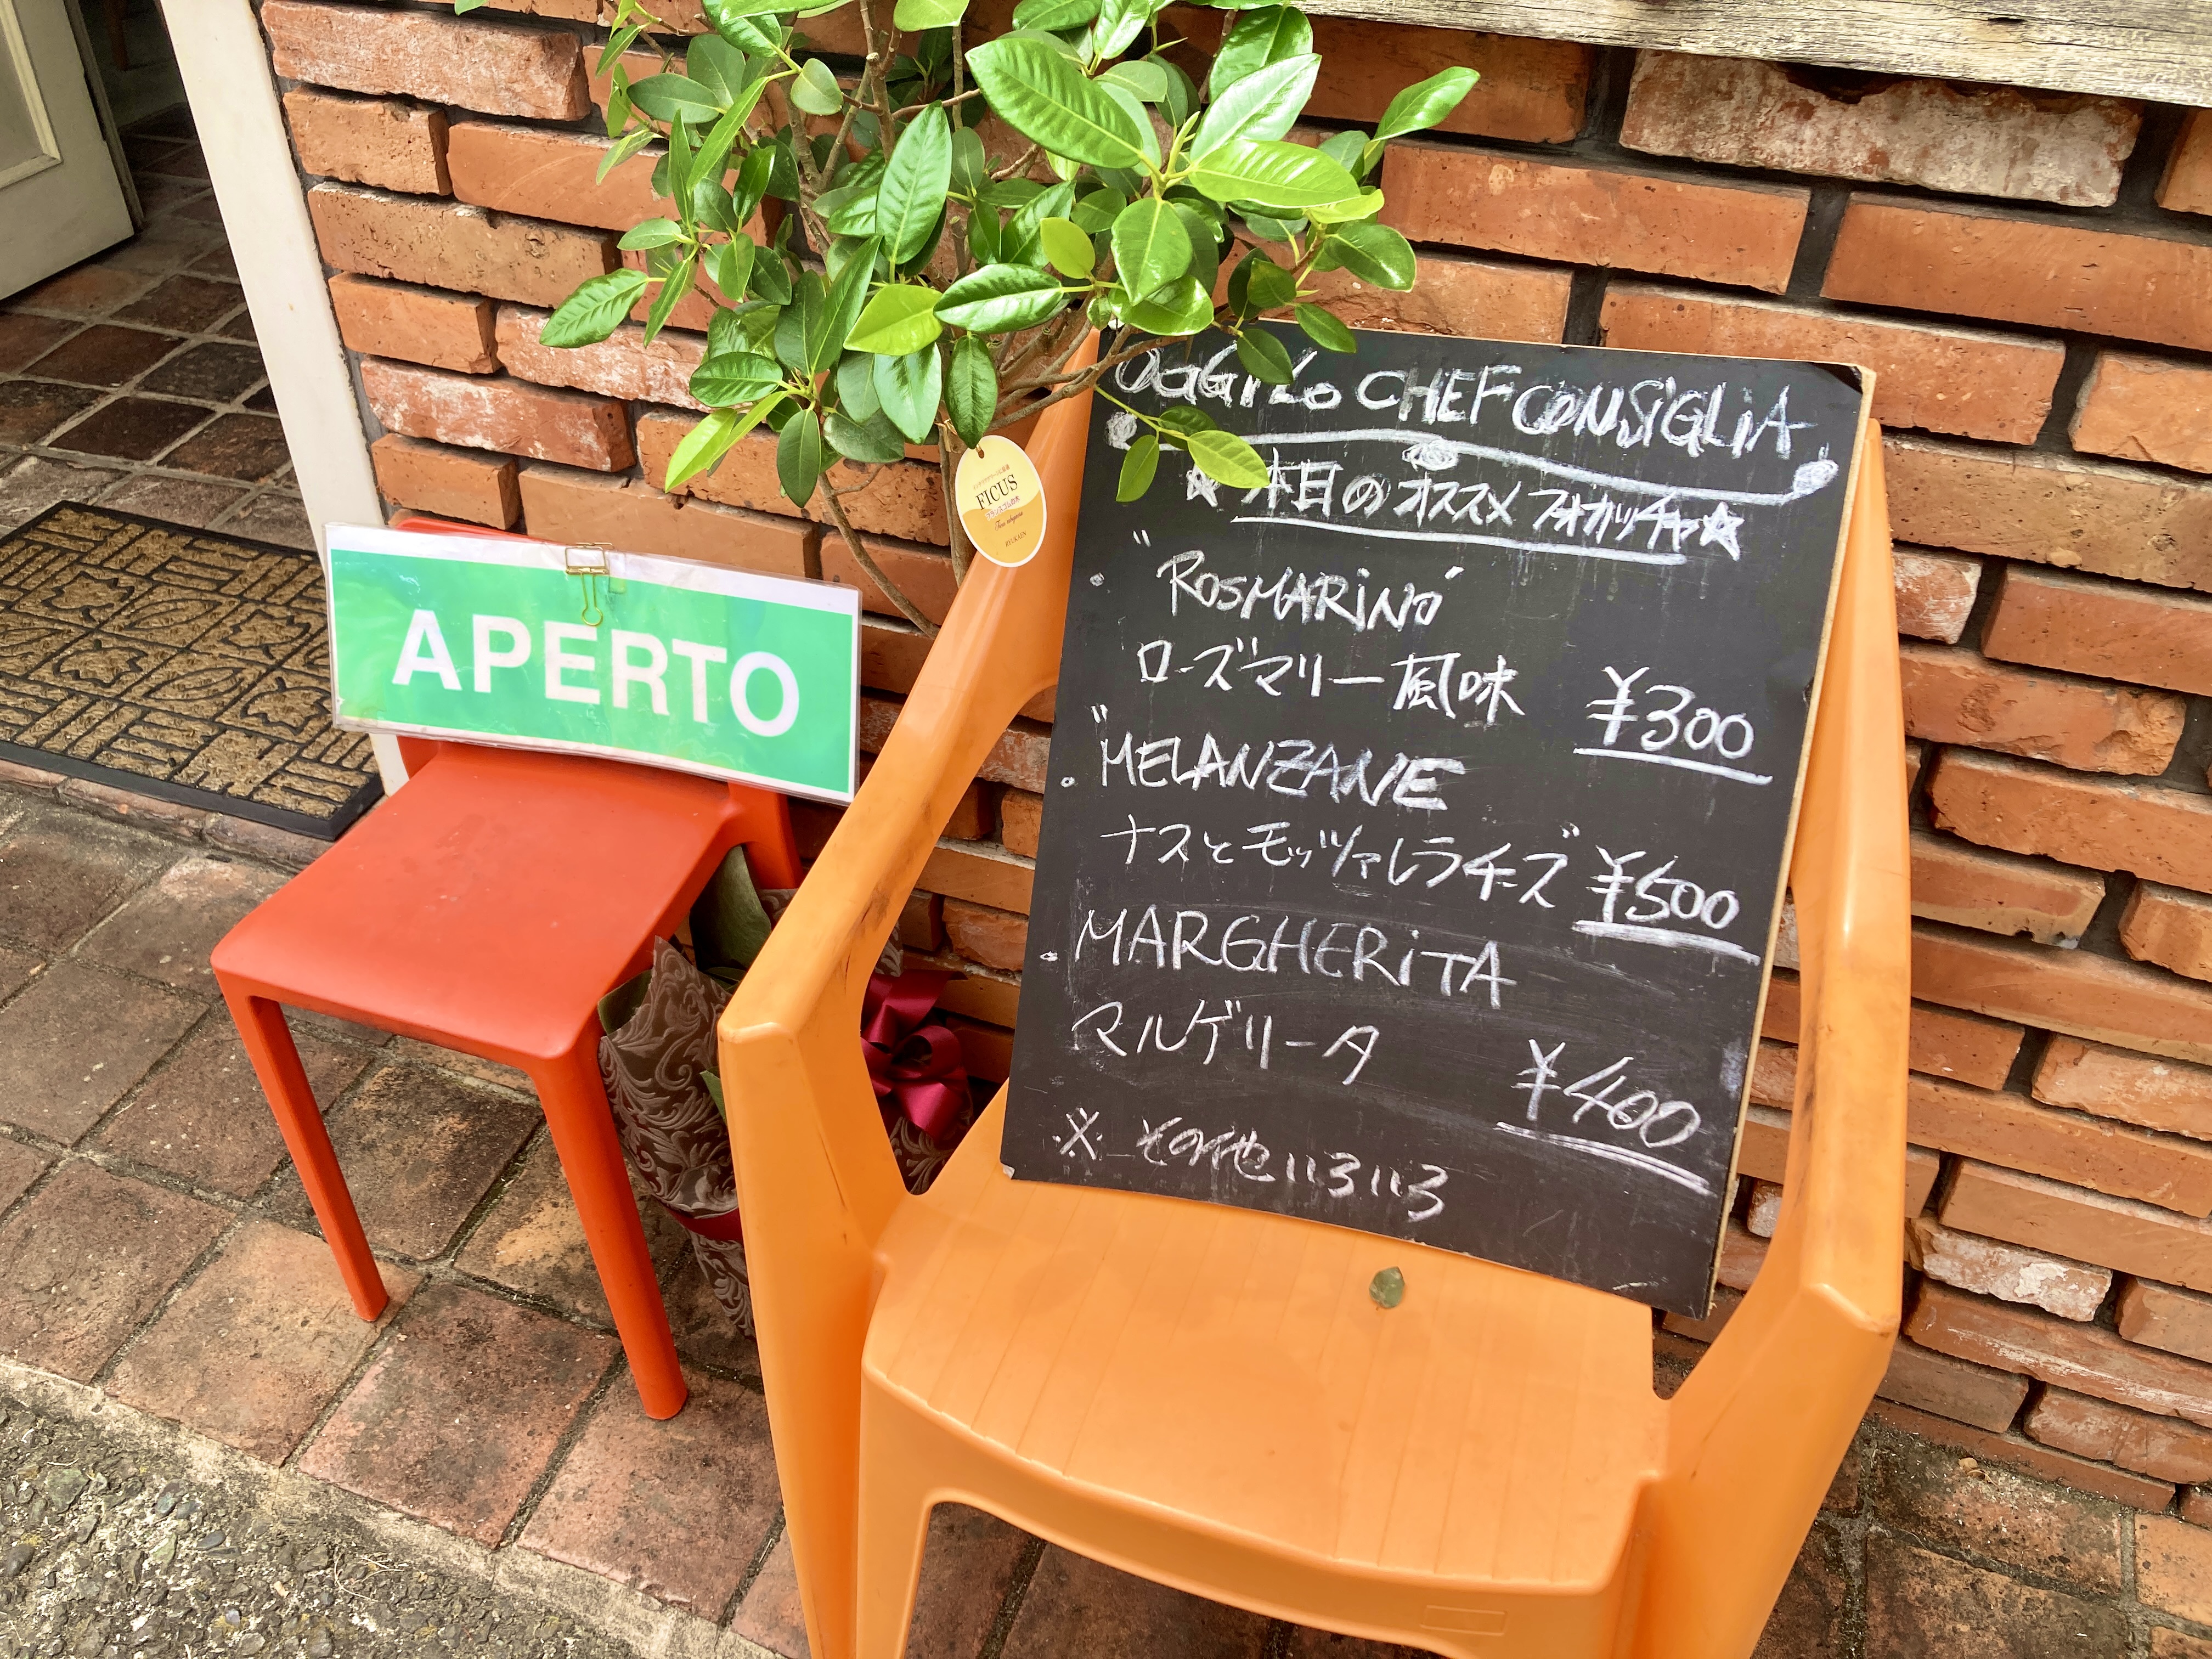 OGGI LO CHEF CONSIGLIA
☆ 本日のオススメ フォカッチャ☆
・"ROSMARINO"
ローズマリー風味 ¥300
・"MELANZANE"
ナスとモッツァレラチーズ ¥500
・MARGHERITA
マルゲリータ ¥400
※ その他いろいろ
APERTO
FICUS